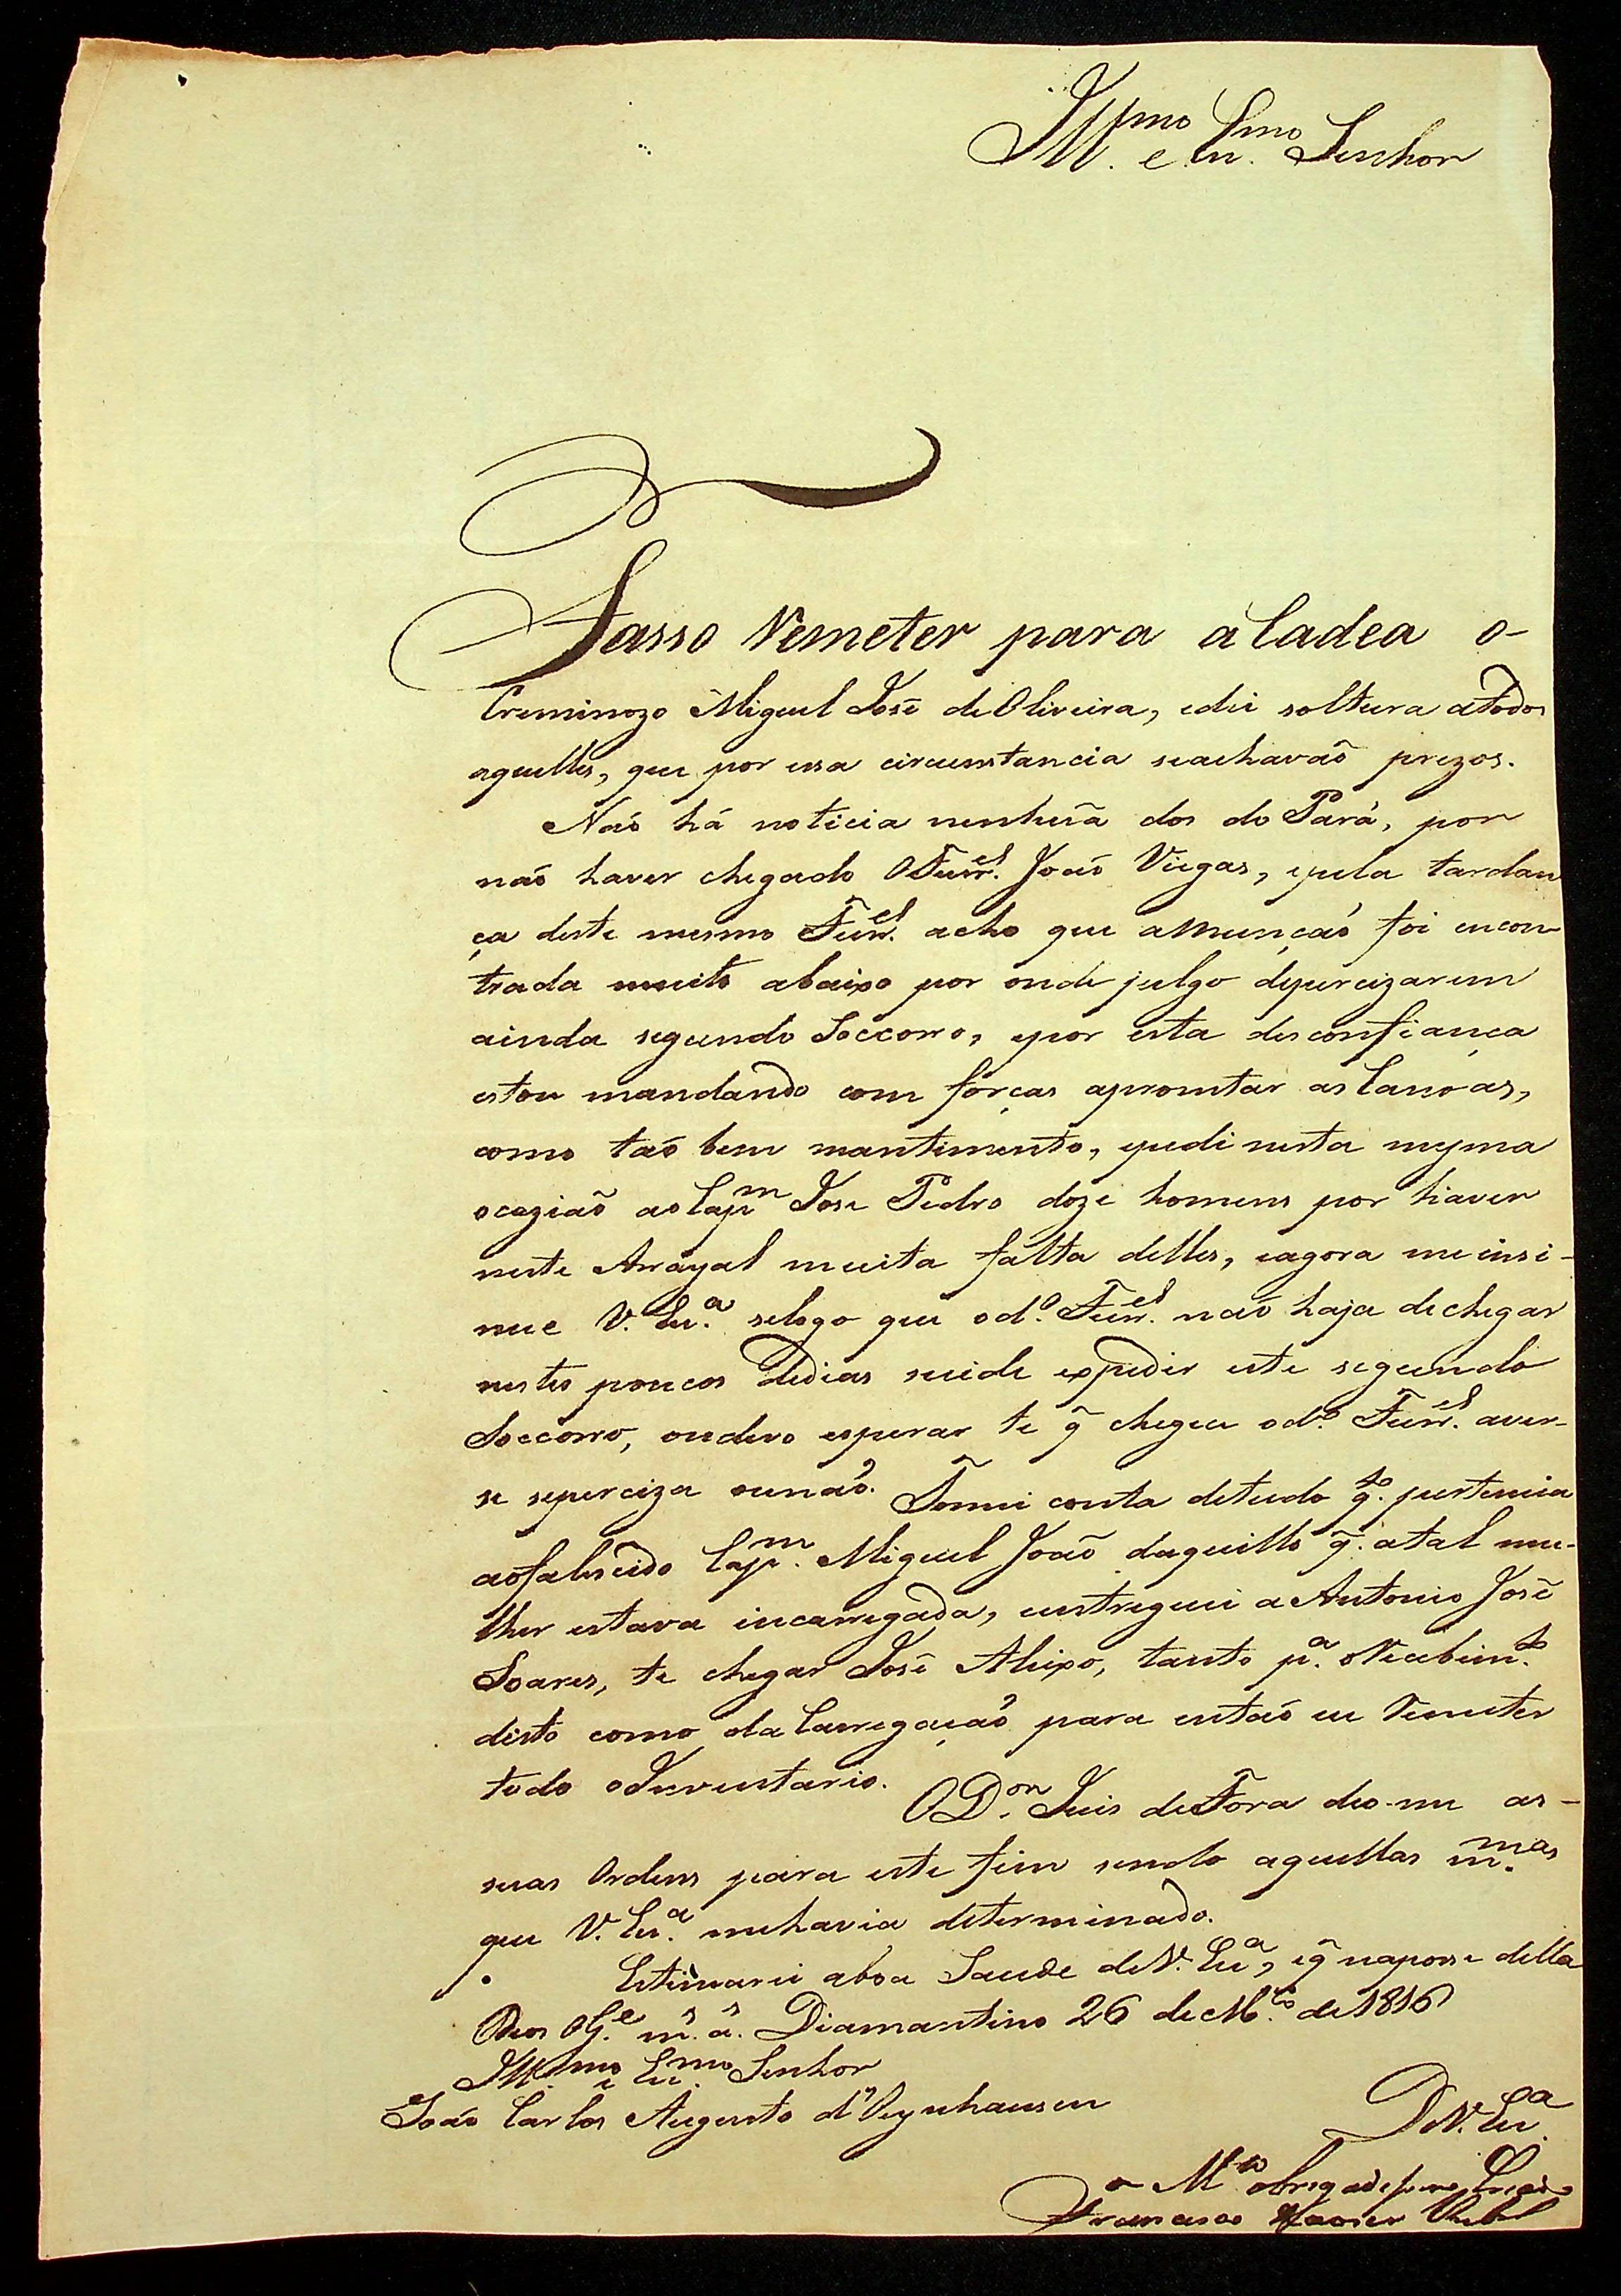 Ill.mo e Ex.mo Senhor
Fasso Remeter para a Cadea o-
Creminozo Miguel José de Oliveira, edei soltura atodos
aquelles, que por essa circumstancia seachavaõ prezos.
Naõ há noticia nenhuã dos do Pará, por
naõ haver chegado OFurr.el João Viegas, epela tardan
ça deste mesmo Furr.el acho que aMunçaõ foi encon-
trada muito abaixo por onde julgo depercizarem
ainda segundo Soccorro, epor esta desconfiança
estou mandando com forças apromtar as Canoas,
como taõ bem mantimento, epedi nesta mesma
ocaziaõ ao Cap.m Jose Pedro doze homens por haver
neste Arrayal muita falta delles, eagora me insi-
nue V. Ex.a selogo que od.o Furr.el naõ haja dechegar
nestes poucos dedias seide expedir este segundo
Soccorro, oudevo esperar te q̃ chegue od.o Furr.el aver-
se seperciza ounaõ. Tomei conta detudo q.to pertencia
aofalescido Cap.m Miguel João daquillo q̃. atal mu-
lher estava incarregada, eentreguei a Antonio José
Soares, te chegar José Aleixo, tanto p.a oRecebim.to
disto como da Carregaçaõ para entaõ eu Remeter
todo oInventario. OD.or Juis deFora deo-me as-
suas Ordens para este fim sendo aquellas m.mas
que V. Ex.a mehavia determinado.
Estimarei aboa Saude deV. Ex.a, eq̃ naposse della
Deos G.e m.s a.s Diamantino 26 de M.ço de 1816
Ill.mo e Ex.mo Senhor
João Carlos Augusto d'Oeynhausen
DeV. Ex.a
o M.to obrigado Creado
Francisco Xavier